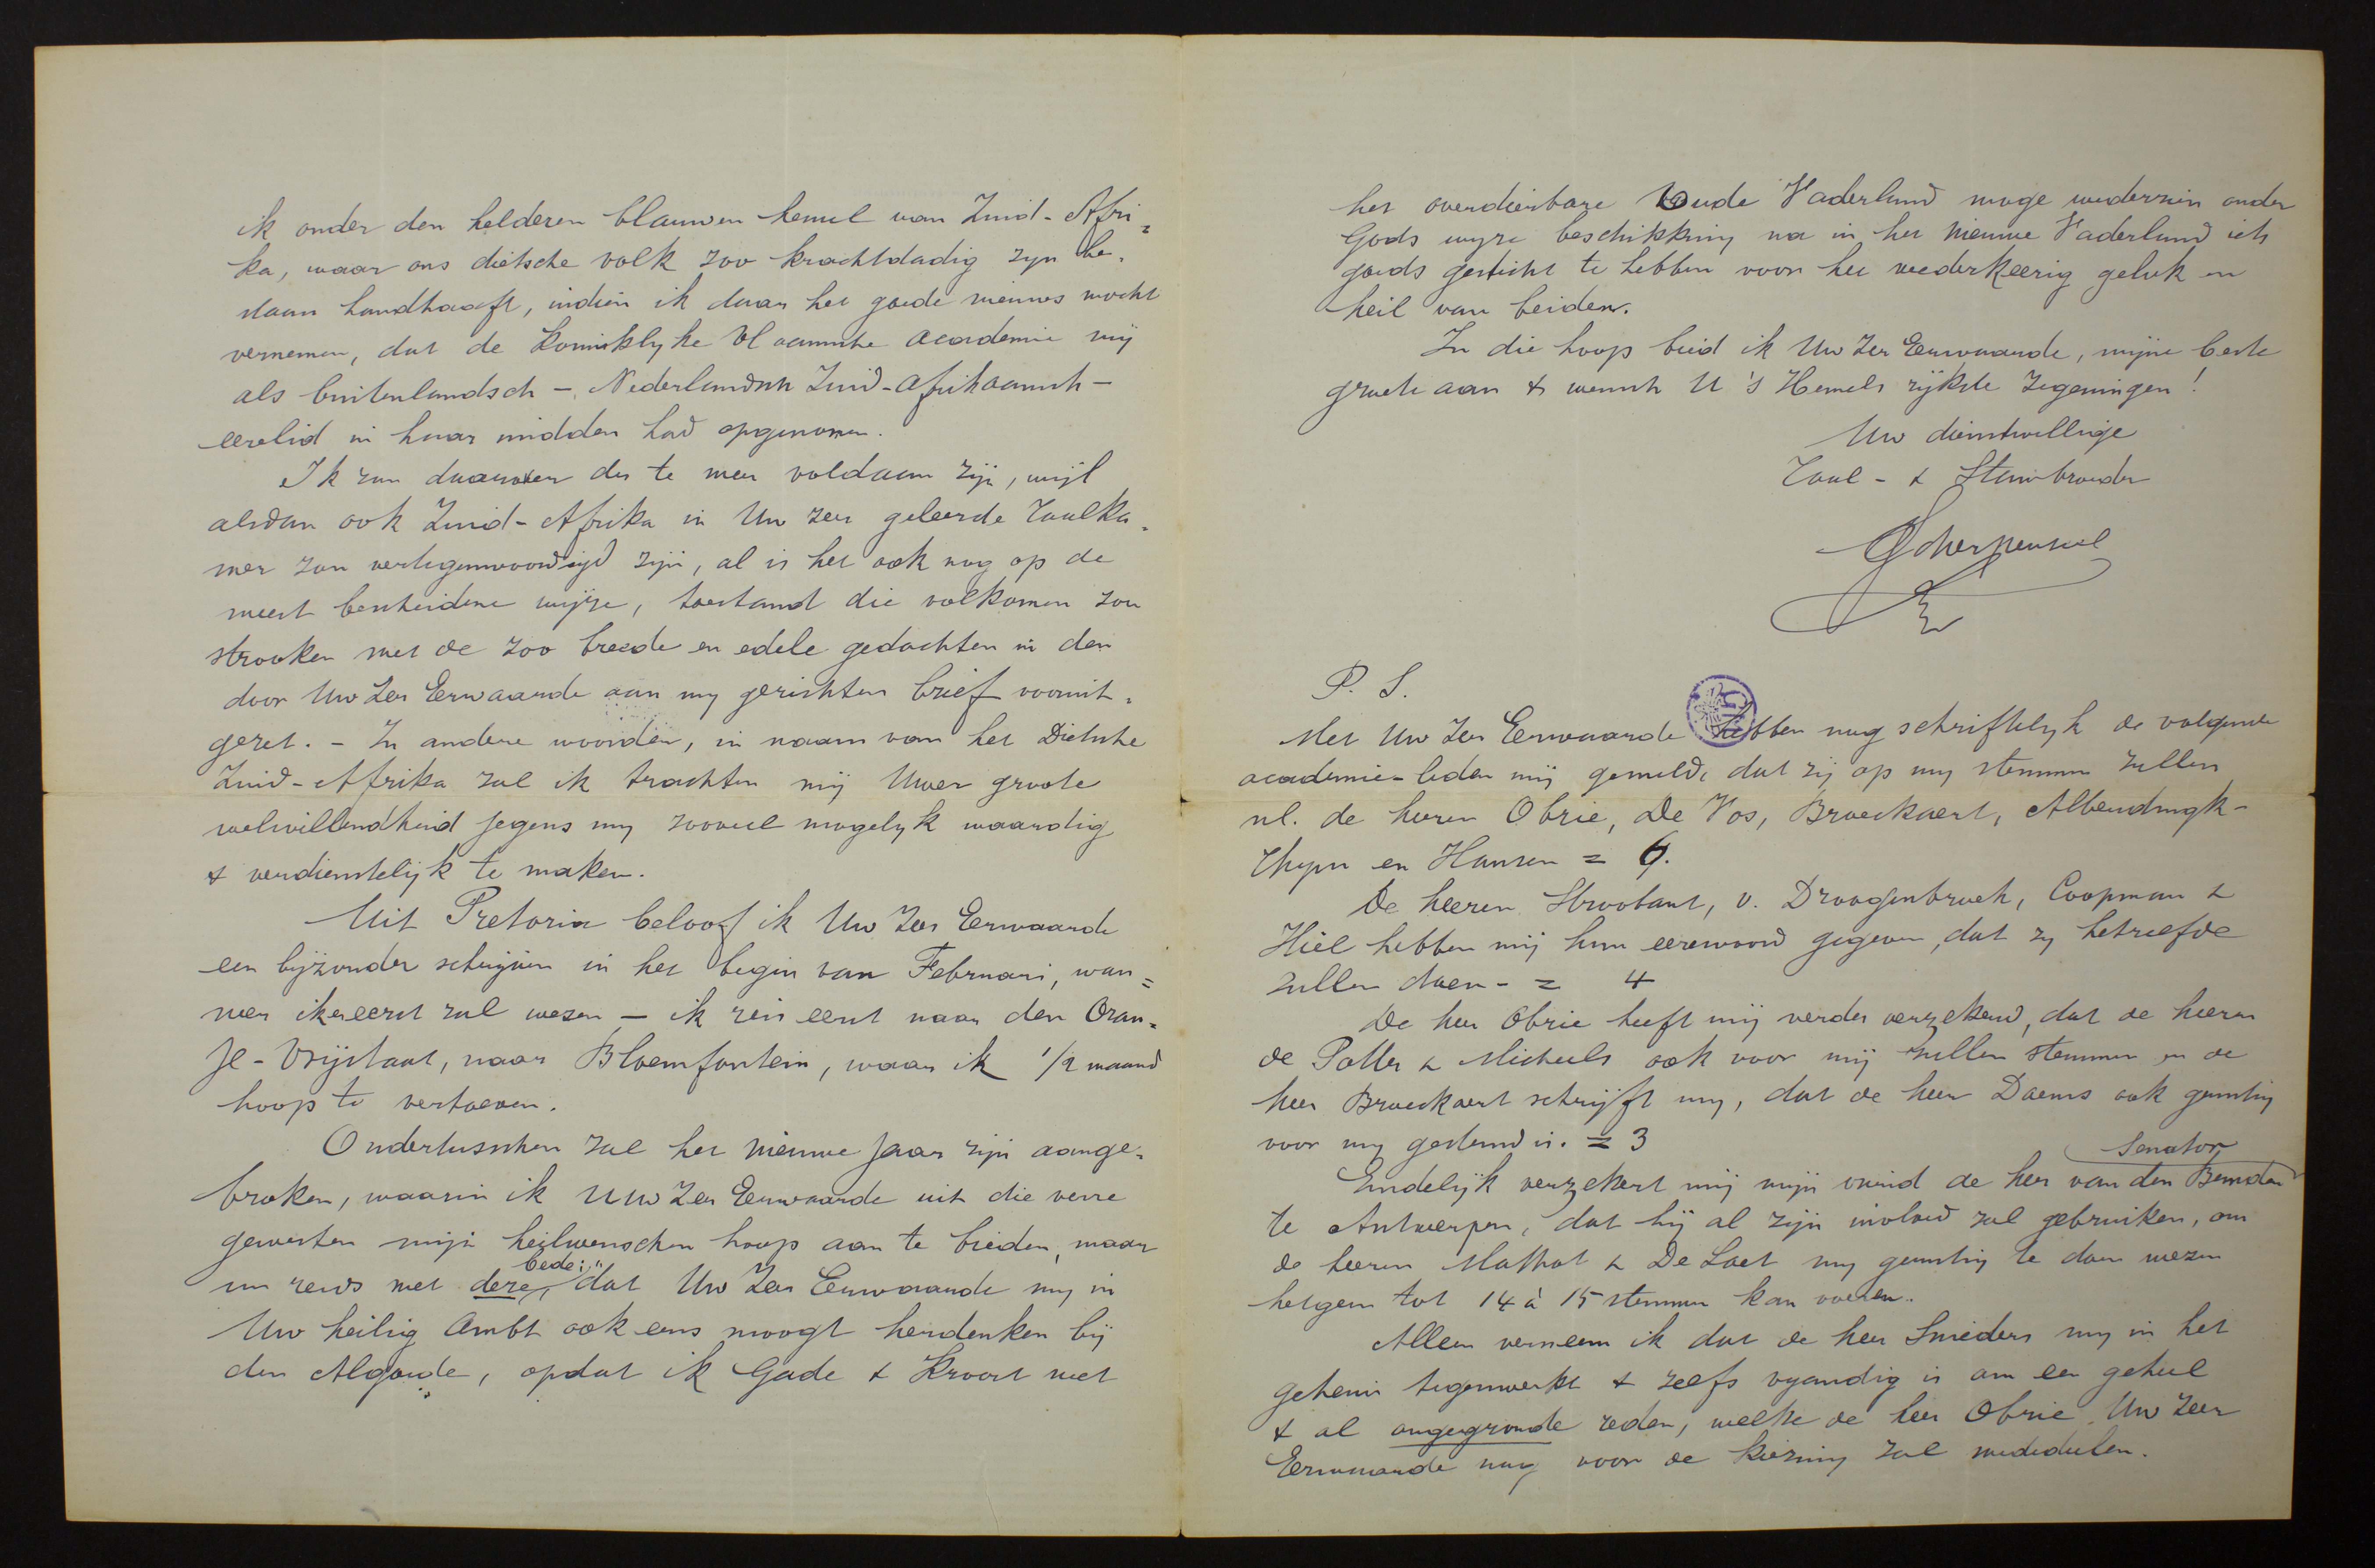 ik onder den helderen blauwen hemel van Zuid-Afri=
ka, waar ons dietsche volk zoo krachtdadig zyn be-
staan handhaaft, indien ik daar het goede nieuws mocht
vernemen, dat de Koninklyke Vlaamsche academie mij
als buitenlandsch - Nederlandsch Zuid-afrikaansch -
eerelid in haar midden had opgenomen.
Ik zou daarover des te meer voldaan zijn, wijl
alsdan ook Zuid-Afrika in Uw zeer geleerde Taalka-
mer zou vertegenwoordigd zijn, al is het ook nog op de
meest bescheidene wijze, toestand die volkomen zou
strooken met de zoo breede en edele gedachten in den
door Uw Zeer Eerwaarde aan my gerichten brief vooruit-
gezet. - In andere woorden, in naam van het Dietsche
Zuid-Afrika zal ik trachten mij Uwer groote
welwillendheid jegens my zooveel mogelyk waardig
& verdienstelijk te maken.
Uit Pretoria beloof ik Uw Zeer Eerwaarde
een byzonder schrijven in het begin van Februari, wan=
neer ik er eerst zal wezen - ik reis eerst naar den Oran=
je-Vrijstaat, naar Bloemfontein, waar ik 1/2 maand
hoop te vertoeven.
Ondertusschen zal het nieuwe jaar zijn aange-
broken, waarin ik Uw Zeer Eerwaarde uit die verre
gewesten mijn heilwenschen hoop aan te bieden, maar
nu reeds met deze bede: dat Uw Zeer Eerwaarde my in
Uw heilig Ambt ook eens moogt herdenken bij
den Algoede, opdat ik Gade & Kroost met
het overdierbare Oude Vaderland moge wederzien onder
Gods wyze beschikking na in het nieuwe Vaderland iets
goeds gesticht te hebben voor het wederkeerig geluk en
heil van beiden.
In die hoop bied ik Uw Zeer Eerwaarde, mijne beste
groete aan & wensch U 's Hemels rijkste zegeningen!
Uw dienstwillige
Taal- & Stambroeder
Scherpenseel
P. S.
Met Uw Zeer Eerwaarde hebben nog schriftelyk de volgende
academie-leden mij gemeld, dat zij op my stemmen zullen
nl. de heeren Obrie, De Vos, Broeckaert, Alberdingk-
Thym en Hansen = 6.
De heeren Stroobant, v. Droogenbroeck, Coopman &
Hiel hebben mij hun eerewoord gegeven, dat zy hetzelfde
zullen doen - = 4
De heer Obrie heeft mij verder verzekerd, dat de heeren
de Potter & Micheels ook voor mij zullen stemmen en de
heer Broeckaert schrijft my, dat de heer Daems ook gunstig
voor my gestemd is. = 3
Eindelijk verzekert mij mijn vriend de heer Senator van den Bemden
te Antwerpen, dat hij al zijn invloed zal gebruiken, om
de heeren Mathot & De Laet my gunstig te doen wezen
hetgeen tot 14 à 15 stemmen kan voeren.
Alleen verneem ik dat de heer Snieders my in het
geheim tegenwerkt & zelfs vyandig is om een geheel
& al ongegronde reden, welke de heer Obrie Uw Zeer
Eerwaarde nog voor de kiezing zal mededeelen.